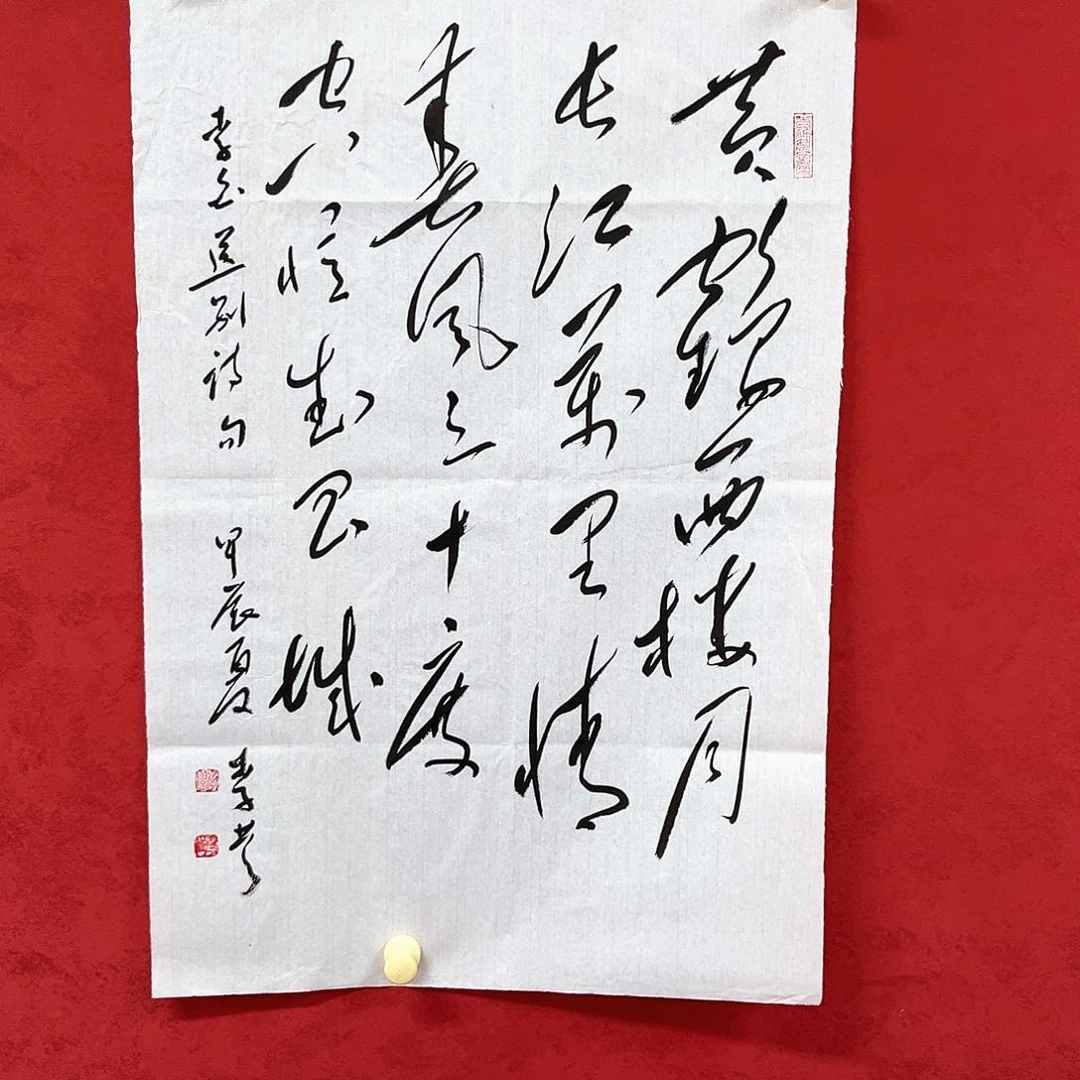 黄鹤西楼月
长江萬里情
春風三十度
空憶武昌城
李白送别詩句
甲辰夏
李